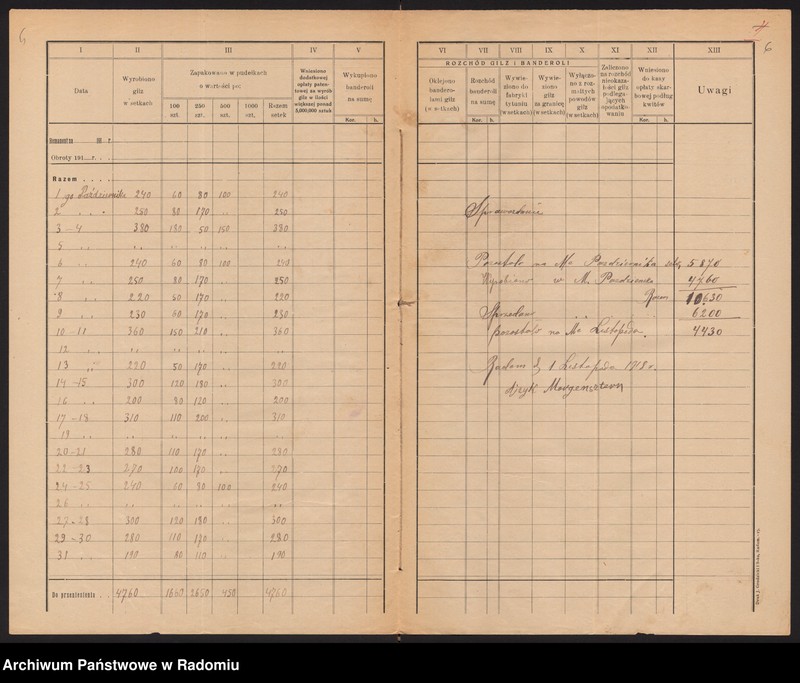 6
4
6
I II III IV V
Data
Wyrobiono gilz w setkach
Zapakowano w pudełkach o wartości po:
100 szt. 250 szt. 500 szt. 1000 szt. Razem setek
Wniesiono dodatkowej opłaty patentowej za wyrób gilz w ilości większej ponad 5,000,000 sztuk
Wykupiono banderoli na sumę
Kor. h.
VI VII VIII IX X XI XII XIII
ROZCHÓD GILZ I BANDEROLI
Oklejono banderolami gilz (w setkach)
Rozchód banderoli na sumę
Kor. h.
Wywieziono do fabryki tytuniu (w setkach)
Wywieziono gilz za granicę (w setkach)
Wyłączono z rozmaitych powodów gilz (w setkach)
Zaliczono na rozchód nieokazałości gilz podlegających opodatkowaniu
Wniesiono do kasy opłaty skarbowej podług kwitów
Kor. h.
Uwagi
Remanent na 191 r.
Obroty 191 r.
Razem
1 go Października 240 60 80 100 240
2 " " 250 80 170 " 250
3-4 380 180 50 150 380
5 " " " " "
6 " " 240 60 80 100 240
7 " " 250 80 170 " 250
8 " " 220 50 170 " 220
9 " " 230 60 170 " 230
10-11 360 150 210 " 360
12 " " " "
13 " " 220 50 170 " 220
14-15 300 120 180 " 300
16 " " 200 80 120 " 200
17-18 310 110 200 " 310
19 " " " " "
20-21 280 110 170 " 280
22-23 270 100 170 " 270
24-25 240 60 80 100 240
26 " " " "
27-28 300 120 180 " 300
29-30 280 110 170 " 280
31 " " 190 80 110 " 190
Do przeniesienia 4760 1660 2650 450 4760
Sprawozdanie
Pozostało na M-c Pazdziernika setk. 5870
Wyrobiono w M. Pazdziernik 4760
Razem 10630
Sprzedano " " 6200
Pozostało na M-c Listopada. 4430
Radom d. 1 Listopada 1918 r.
Ajzyk Morgensztern
Archiwum Państwowe w Radomiu